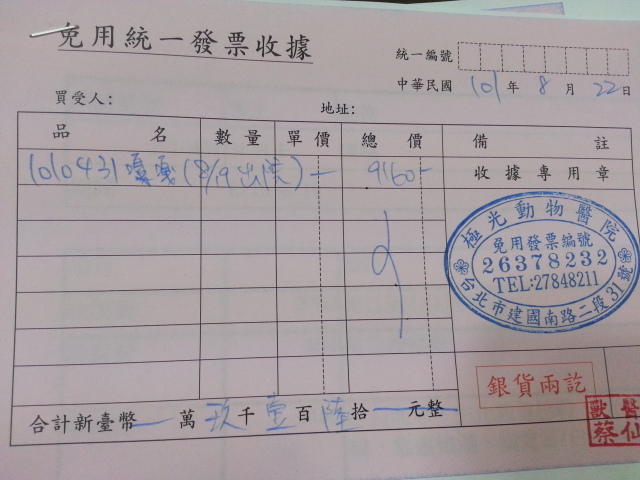 免用統一發票收據
統一編號
中華民國 101 年 8 月 22 日
買受人: 地址:
品名 數量 單價 總價 備註
1010431 嘎嘎 (8/19出院) 9160- 收據專用章
極光動物醫院
免用發票編號
26378232
TEL:27848211
台北市建國南路二段31號
銀貨兩訖
合計新臺幣 萬 玖 千 壹 百 陸 拾 元整
獸醫
蔡仙